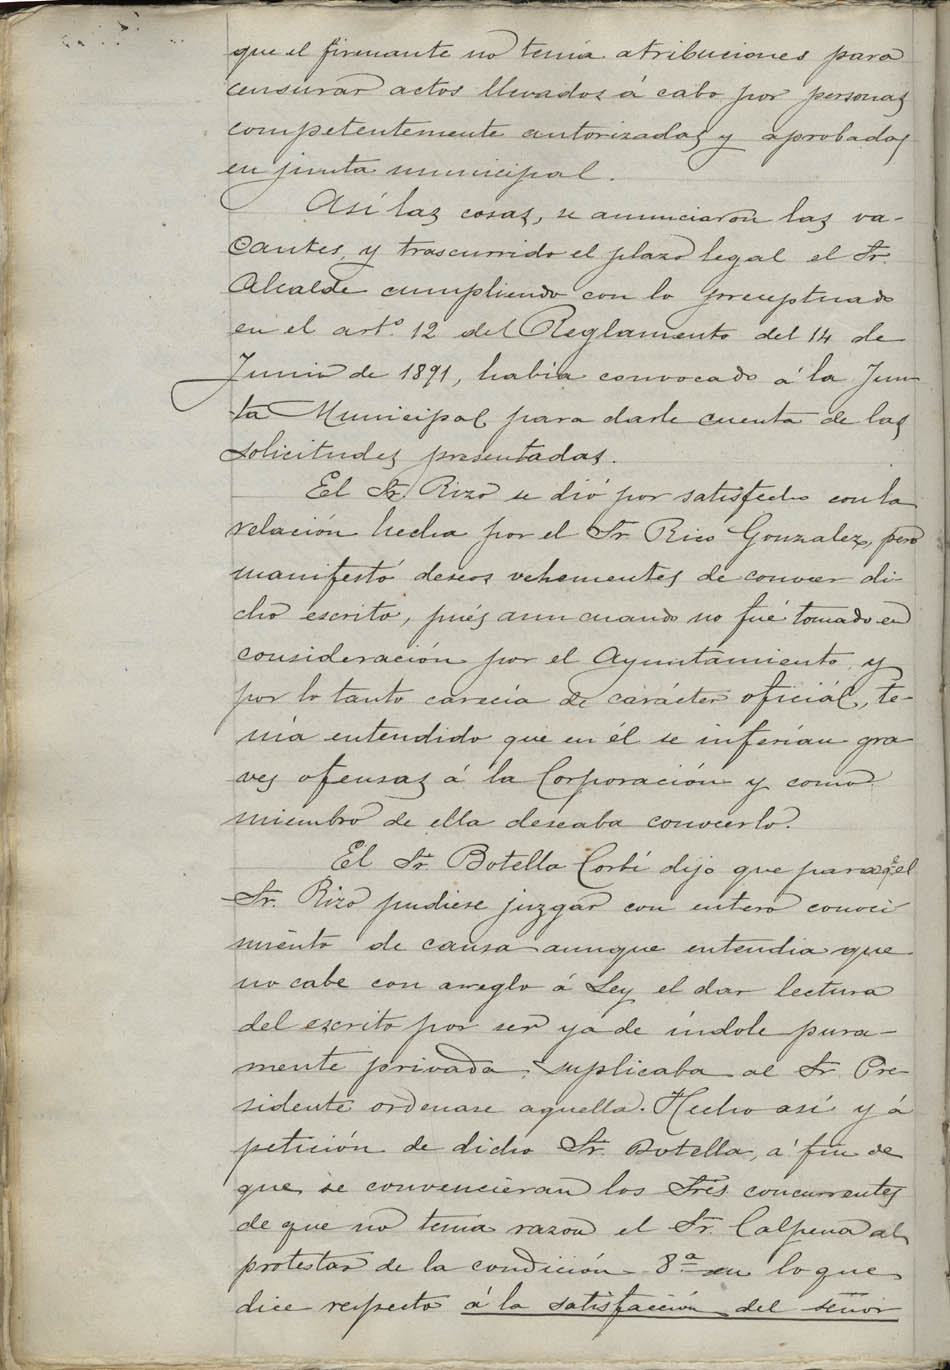 que el firmante no tenía atribuciones para
censurar actos llevados á cabo por personas
competentemente autorizadas y aprobados
en junta municipal.
Así las cosas, se anunciaron las va-
cantes, y trascurrido el plazo legal el Sr.
Alcalde cumpliendo con lo preceptuado
en el artº 12 del Reglamento del 14 de
Junio de 1891, había convocado á la Jun-
ta Municipal para darle cuenta de las
solicitudes presentadas.
El Sr. Rizo se dió por satisfecho con la
relación hecha por el Sr Rico Gonzalez, pero
manifestó deseos vehementes de conocer di-
cho escrito, pués aun cuando no fué tomado en
consideración por el Ayuntamiento y
por lo tanto carecía de carácter oficiál, te-
nía entendido que en él se inferían gra-
ves ofensas á la Corporación y como
miembro de ella deseaba conocerlo.
El Sr. Botella Corbí dijo que para q.e el
Sr. Rizo pudiese juzgar con entero conoci
miento de causa aunque entendia que
no cabe con arreglo á Ley el dar lectura
del escrito por ser ya de índole pura-
mente privada, suplicaba al Sr. Pre-
sidente ordenase aquella. Hecho así y á
petición de dicho Sr. Botella, á fin de
que se convencieran los Sres concurrentes
de que no tenía razon el Sr. Calpena al
protestar de la condición 8ª en lo que
dice respecto á la satisfacción del señor